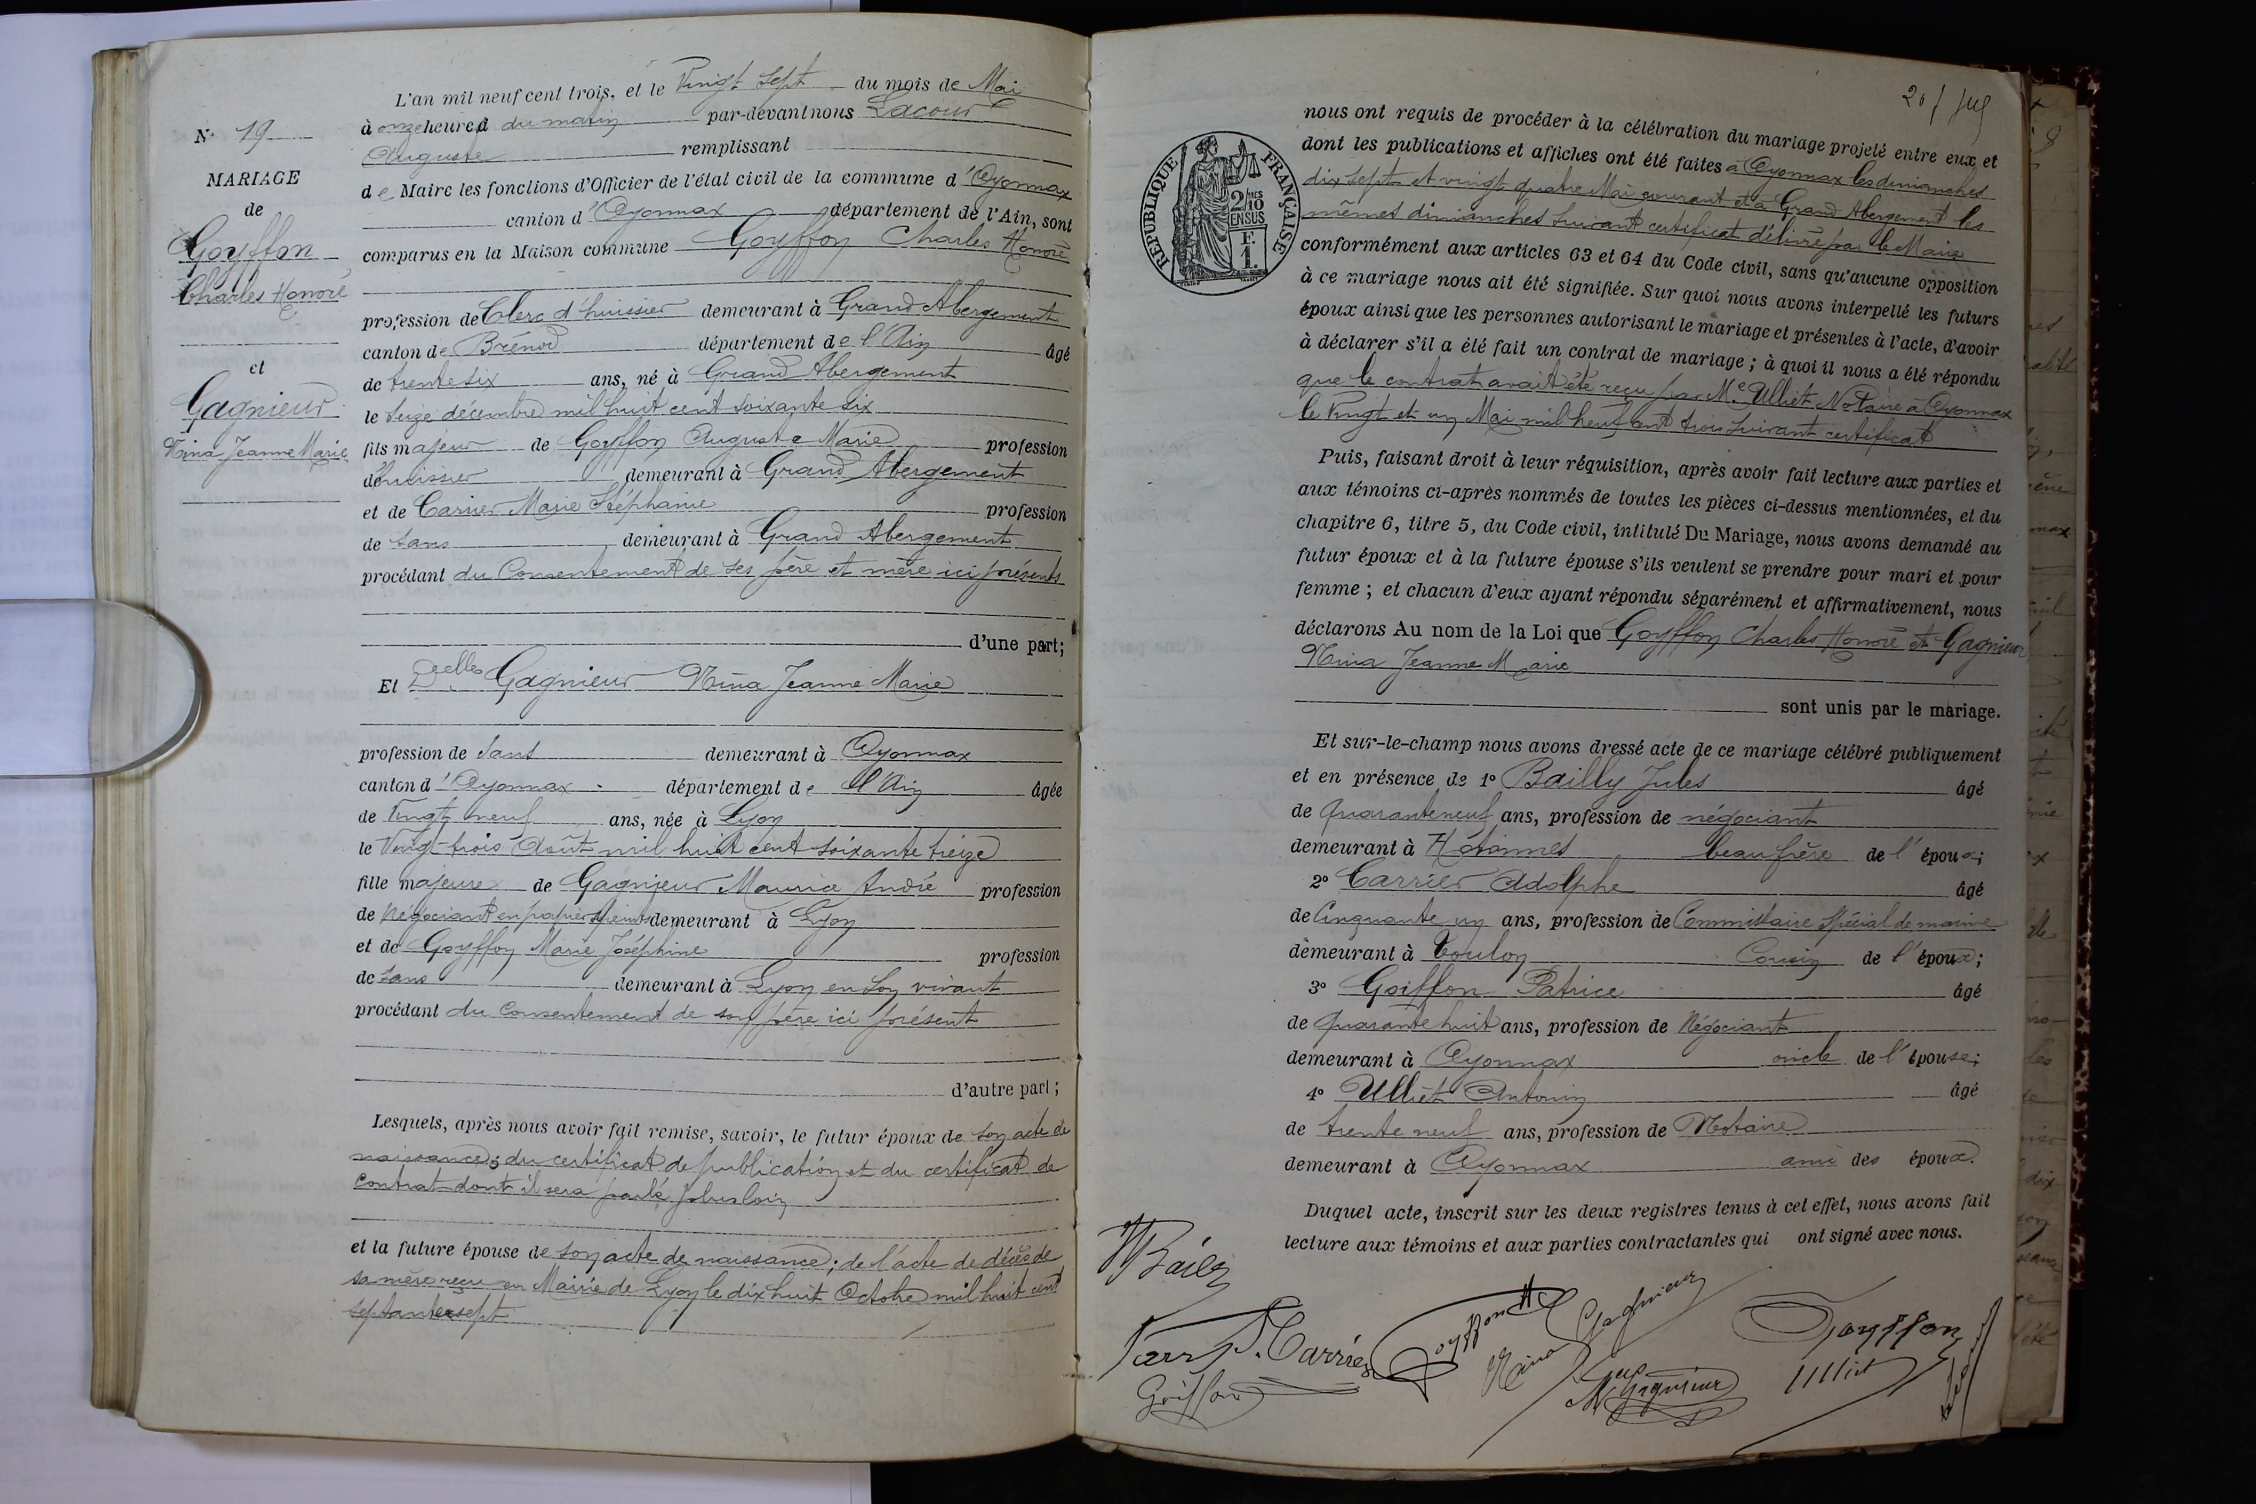 L'an mil neuf cent trois, et le Vingt sept du mois de Mai
à onze heures du matin par-devant nous Lacour
Auguste remplissant
de Maire les fonctions d'Officier de l'état civil de la commune d'Oyonnax
canton d'Oyonnax département de l'Ain, sont
comparus en la Maison commune Goyffon Charles Honoré
profession de Clerc d'huissier demeurant à Grand Abergement
canton de Brénod département de l'Ain âgé
de trente six ans, né à Grand Abergement
le seize décembre mil huit cent soixante six
fils majeur de Goyffon Auguste Marie profession
d'huissier demeurant à Grand Abergement
et de Carrier Marie Stéphanie profession
de sans demeurant à Grand Abergement
procédant du consentement de ses père et mère ici présents
d'une part;
Et Delle Gagnieur Nina Jeanne Marie
profession de sans demeurant à Oyonnax
canton d'Oyonnax département de l'Ain âgée
de Vingt neuf ans, née à Lyon
le Vingt-trois Août mil huit cent soixante treize
fille majeure de Gagnieur Maurice André profession
de Négociant en papiers peints demeurant à Lyon
et de Goyffon Marie Joséphine profession
de sans demeurant à Lyon en son vivant
procédant du consentement de son père ici présent
d'autre part;
Lesquels, après nous avoir fait remise, savoir, le futur époux de son acte de
naissance; du certificat de publication et du certificat de
contrat dont il sera parlé plus loin
et la future épouse de son acte de naissance; de l'acte de décès de
sa mère reçu en Mairie de Lyon le dix huit Octobre mil huit cent
septante sept
N° 19
MARIAGE
de
Goyffon
Charles Honoré
et
Gagnieur
Nina Jeanne Marie
RÉPUBLIQUE FRANÇAISE
2/10
EN SUS
F.
1.
nous ont requis de procéder à la célébration du mariage projeté entre eux et
dont les publications et affiches ont été faites à Oyonnax les dimanches
dix sept et vingt quatre Mai courant et à Grand Abergement les
mêmes dimanches suivant certificat délivré par le Maire
conformément aux articles 63 et 64 du Code civil, sans qu'aucune opposition
à ce mariage nous ait été signifiée. Sur quoi nous avons interpellé les futurs
époux ainsi que les personnes autorisant le mariage et présentes à l'acte, d'avoir
à déclarer s'il a été fait un contrat de mariage; à quoi il nous a été répondu
que le contrat avait été reçu par Me Ulliet Notaire à Oyonnax
le Vingt et un Mai mil neuf cent trois suivant certificat
Puis, faisant droit à leur réquisition, après avoir fait lecture aux parties et
aux témoins ci-après nommés de toutes les pièces ci-dessus mentionnées, et du
chapitre 6, titre 5, du Code civil, intitulé Du Mariage, nous avons demandé au
futur époux et à la future épouse s'ils veulent se prendre pour mari et pour
femme; et chacun d'eux ayant répondu séparément et affirmativement, nous
déclarons Au nom de la Loi que Goyffon Charles Honoré et Gagnieur
Nina Jeanne Marie
sont unis par le mariage.
Et sur-le-champ nous avons dressé acte de ce mariage célébré publiquement
et en présence de 1° Bailly Jules âgé
de quarante neuf ans, profession de négociant
demeurant à Hotonnes beau frère de l'époux;
2° Carrier Adolphe âgé
de Cinquante un ans, profession de Commissaire spécial de marine
demeurant à Toulon Cousin de l'époux;
3° Goiffon Patrice âgé
de quarante huit ans, profession de Négociant
demeurant à Oyonnax oncle de l'épouse;
4° Ulliet Antonin âgé
de trente neuf ans, profession de Notaire
demeurant à Oyonnax ami des époux.
Duquel acte, inscrit sur les deux registres tenus à cet effet, nous avons fait
lecture aux témoins et aux parties contractantes qui ont signé avec nous.
S. Carrier
Goyffon
Nina Gagnieur
Goyffon
Goiffon
M Gagnieur
Ulliet